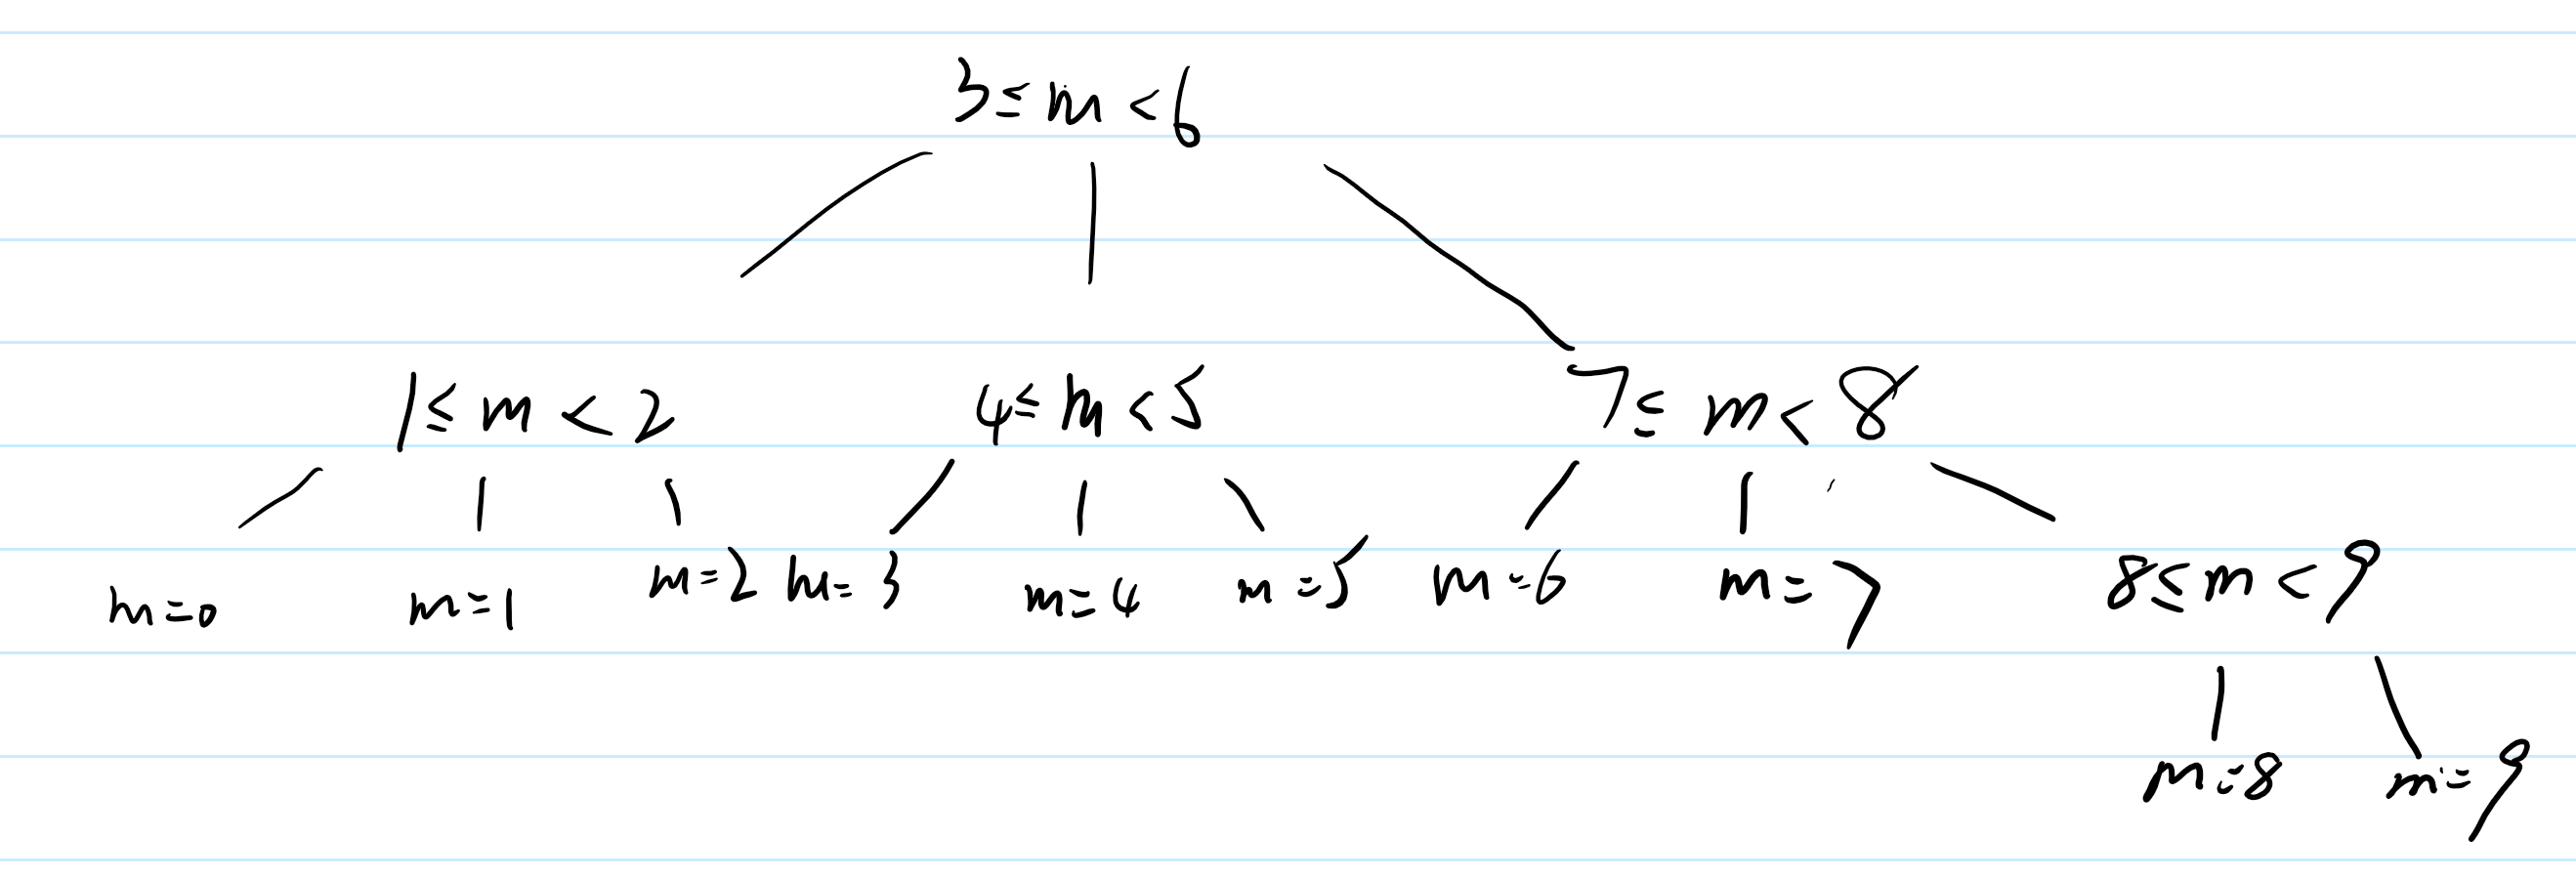 3 ≤ m < 6
1 ≤ m < 2 4 ≤ m < 5 7 ≤ m < 8
m=0 m=1 m=2 m=3 m=4 m=5 m=6 m=7 8 ≤ m < 9
m=8 m=9